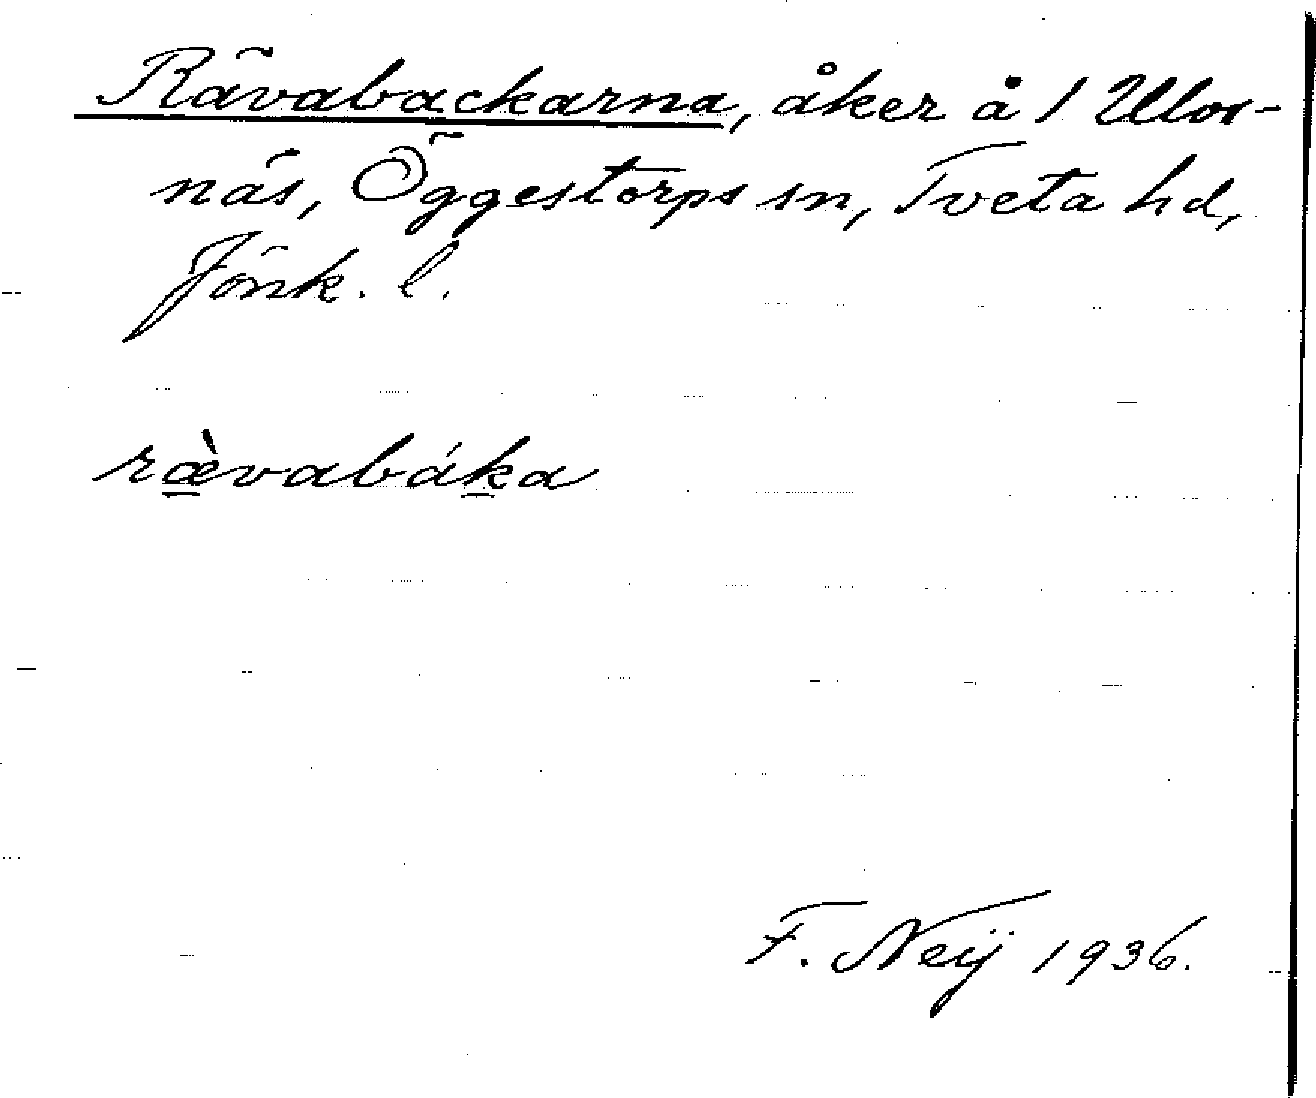 Rävabackarna, åker å 1 Ulos-
näs, Öggestorps sn, Tveta hd,
Jönk. l.
ræ̀vabáka
F. Neij 1936.